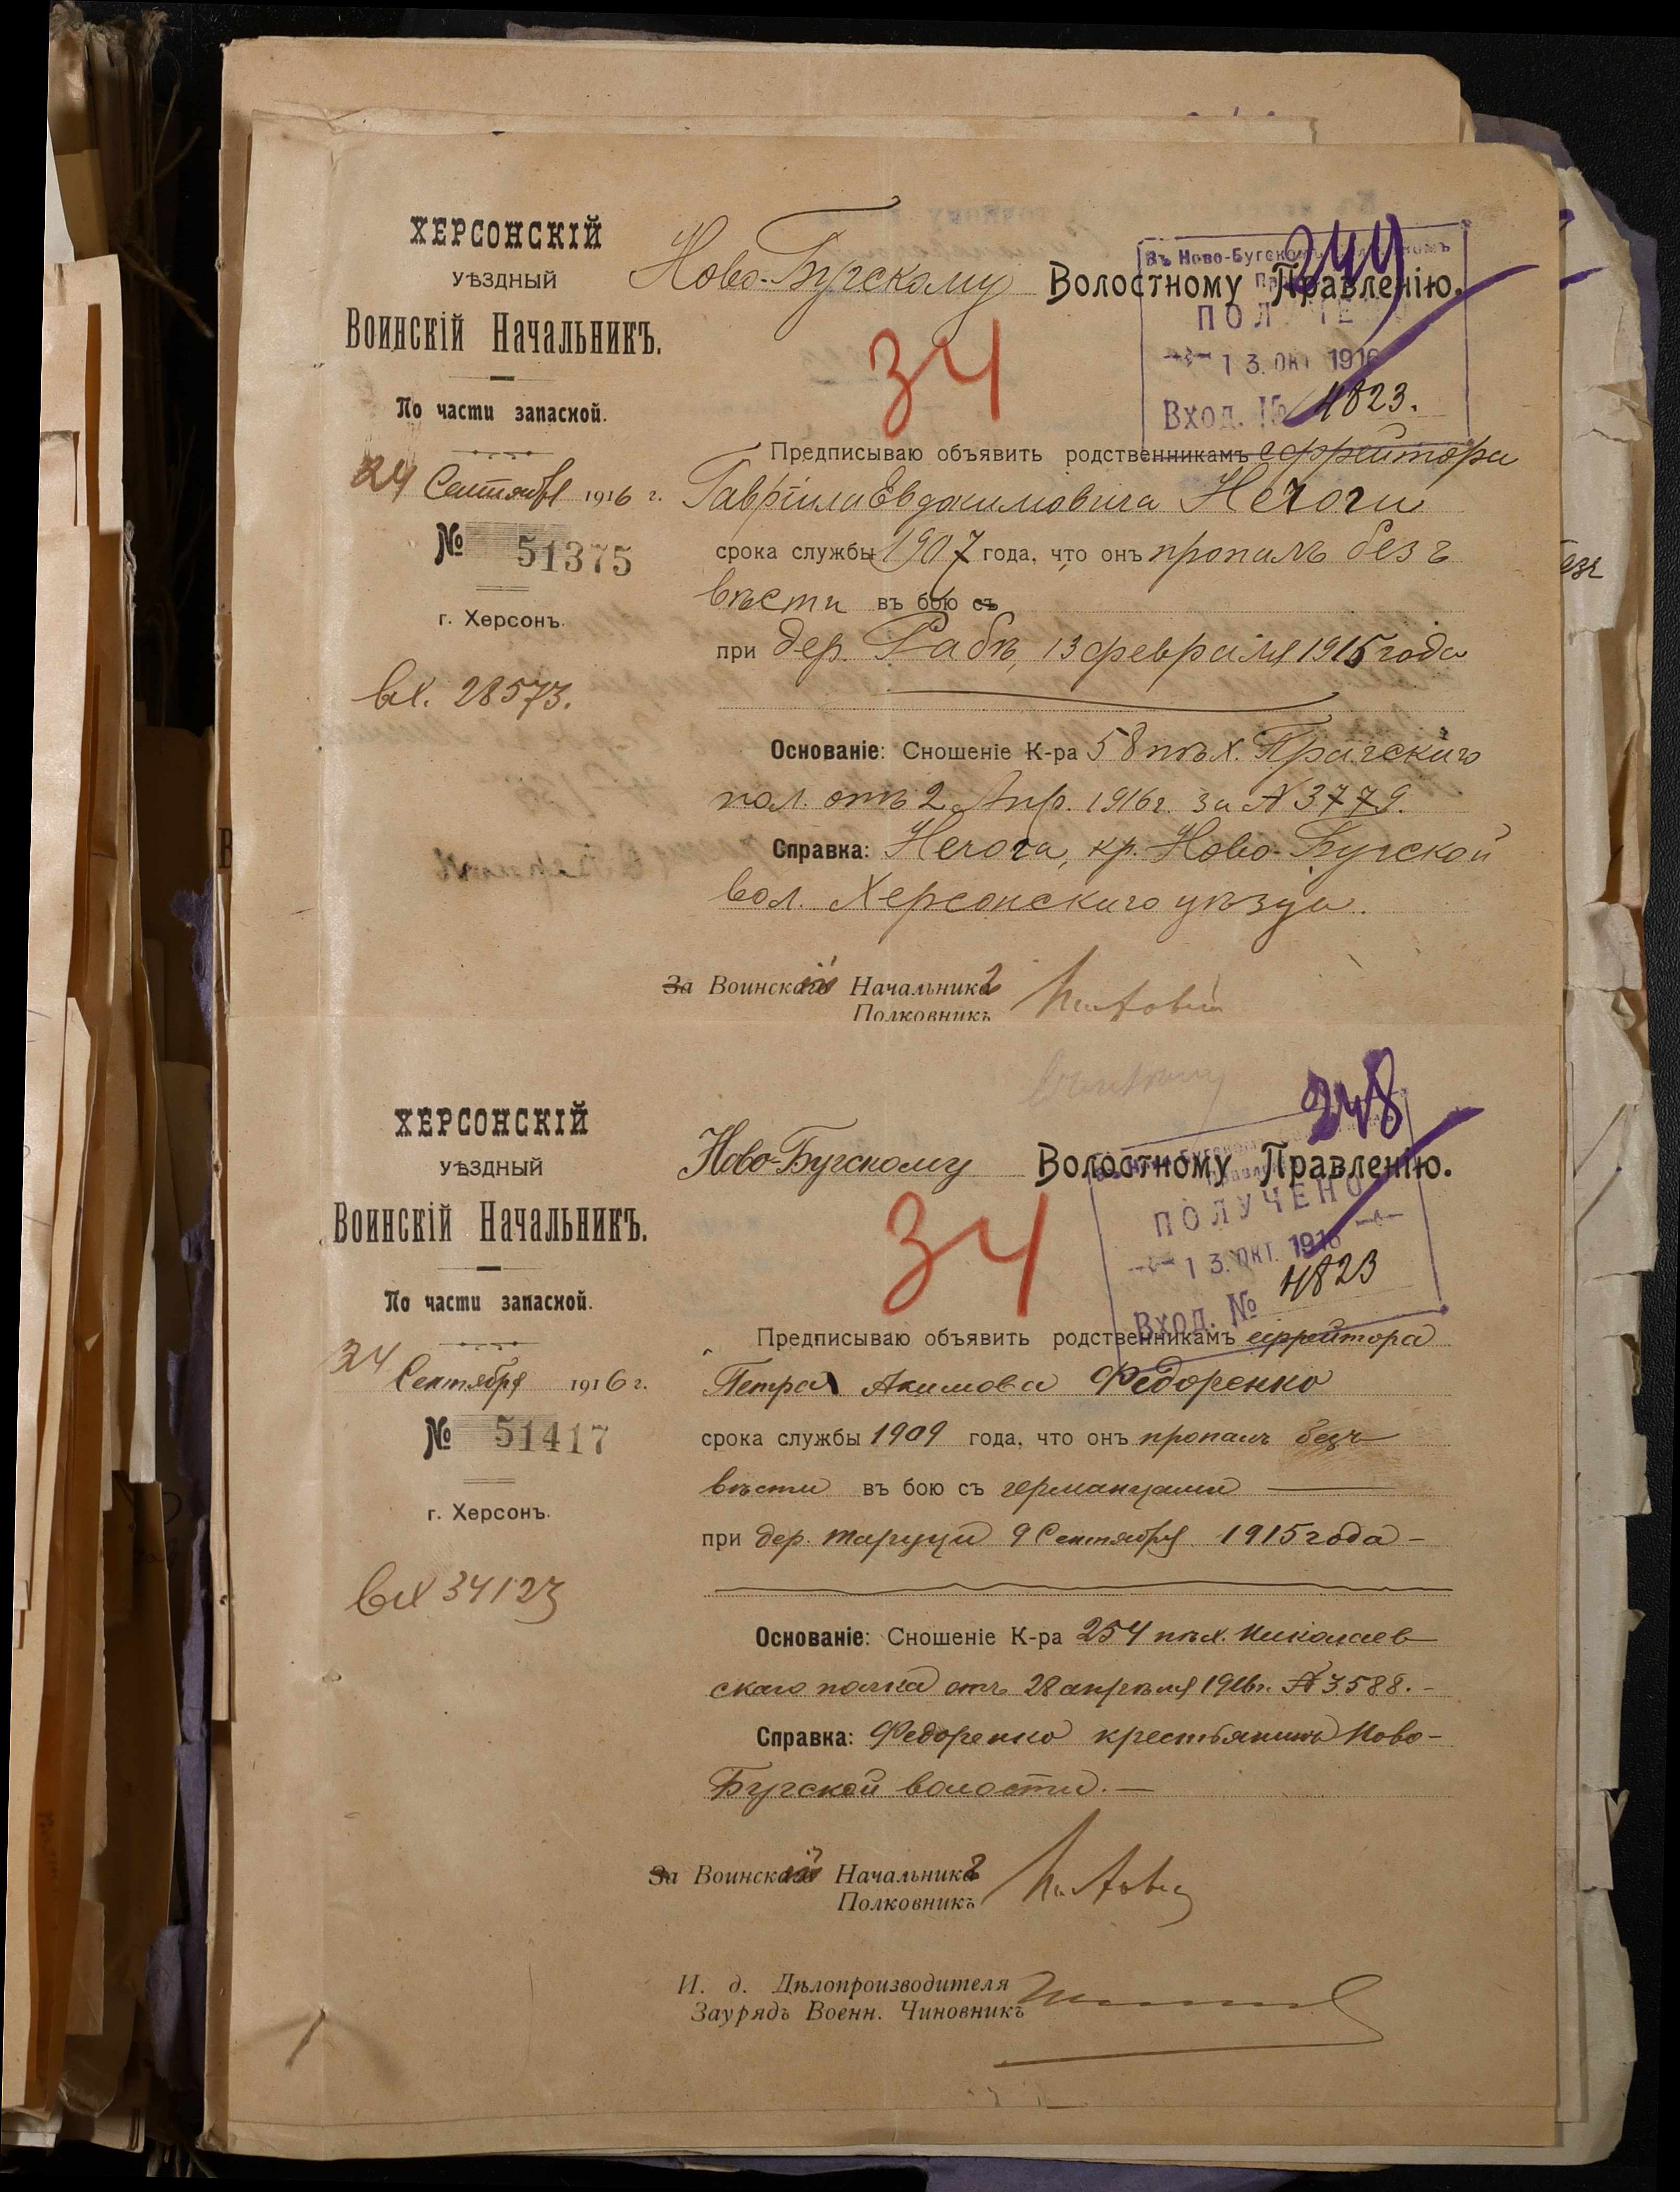 ХЕРСОНСКІЙ
УѢЗДНЫЙ
Воинскій Начальникъ.
По части запасной.
24 Сентября 1916 г.
№ 51375
г. Херсонъ.
Вх. 28573.
Ново-Бугскому Волостному Правленію.
249
Въ Ново-Бугскомъ
ПОЛ
13. ОКТ 1916
Вход. № 4823.
34
Предписываю объявить родственникамъ ефрейтора
Гавріила Евдокимовича Нечоги
срока службы 1907 года, что онъ пропалъ безъ
вѣсти въ бою съ
при дер. Рабѣ, 13 февраля 1915 года
Основаніе: Сношеніе К-ра 58 пѣх. Прагскаго
пол. отъ 2 Апр. 1916 г. за № 3779.
Справка: Нечога, кр. Ново-Бугской
вол. Херсонскаго уѣзда.
За Воинскій Начальникъ
Полковникъ
ХЕРСОНСКІЙ
УѢЗДНЫЙ
Воинскій Начальникъ.
По части запасной.
24 Сентября 1916 г.
№ 51417
г. Херсонъ.
Вх 34123
Ново-Бугскому Волостному Правленію.
248
ПОЛУЧЕНО
13. ОКТ. 1916
Вход. № 4823
34
Предписываю объявить родственникамъ ефрейтора
Петра Акимова Федоренко
срока службы 1909 года, что онъ пропалъ безъ
вѣсти въ бою съ германцами
при дер. Таруци 9 Сентября 1915 года -
Основаніе: Сношеніе К-ра 254 пѣх. Николаев
скаго полка отъ 28 апрѣля 1916 г. № 3588. -
Справка: Федоренко крестьянинъ Ново-
Бугской волости. —
За Воинскій Начальникъ
Полковникъ
И. д. Дѣлопроизводителя
Заурядъ Военн. Чиновникъ